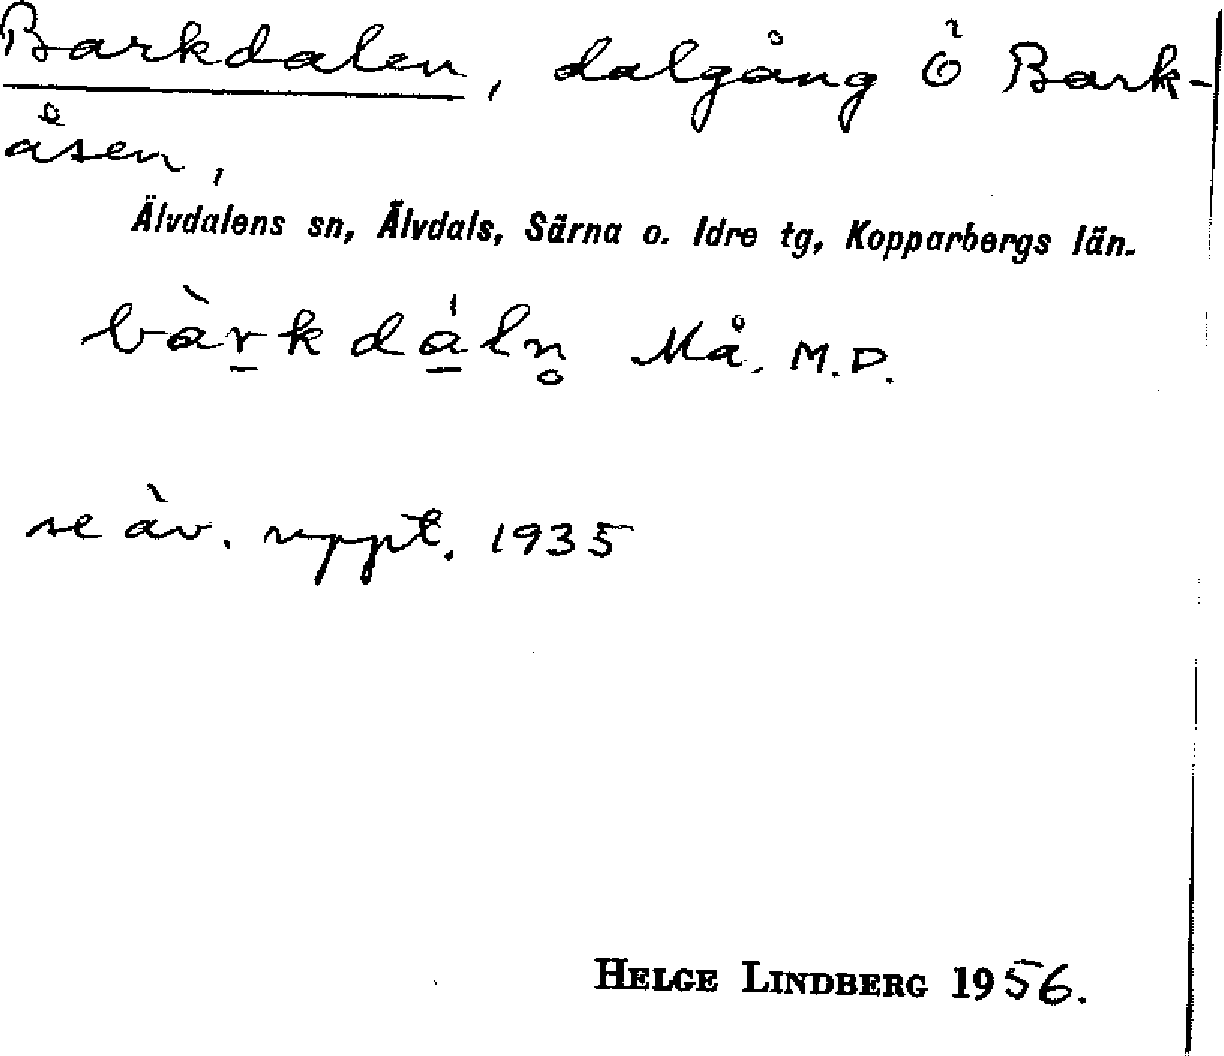 Barkdalen, dalgång ö Bark-
åsen,
Älvdalens sn, Älvdals, Särna o. Idre tg, Kopparbergs län.
bàrkdáln̥ Må. M.D.
se äv. uppt. 1935
HELGE LINDBERG 1956.